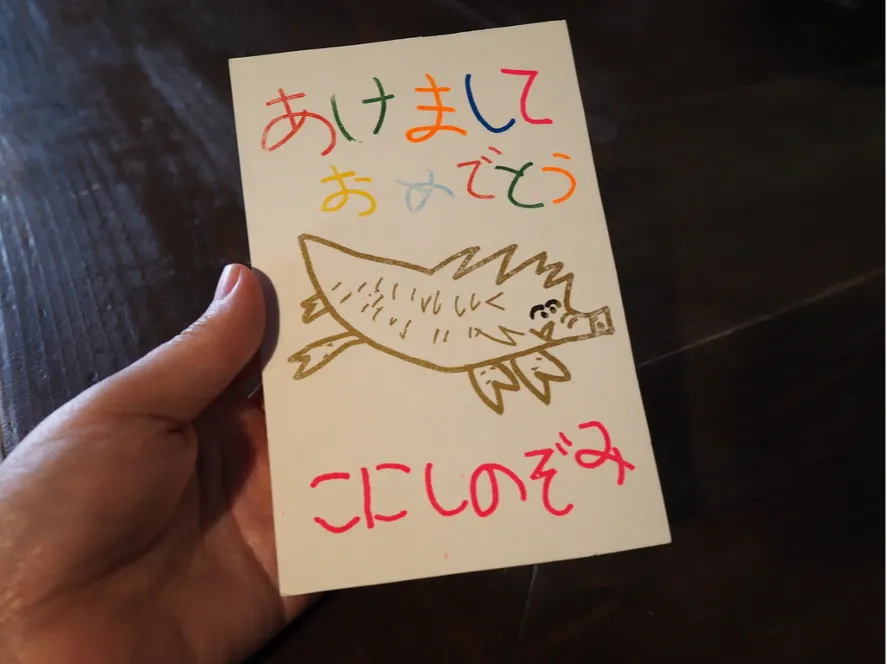 あけまして
おめでとう
こにしのぞみ